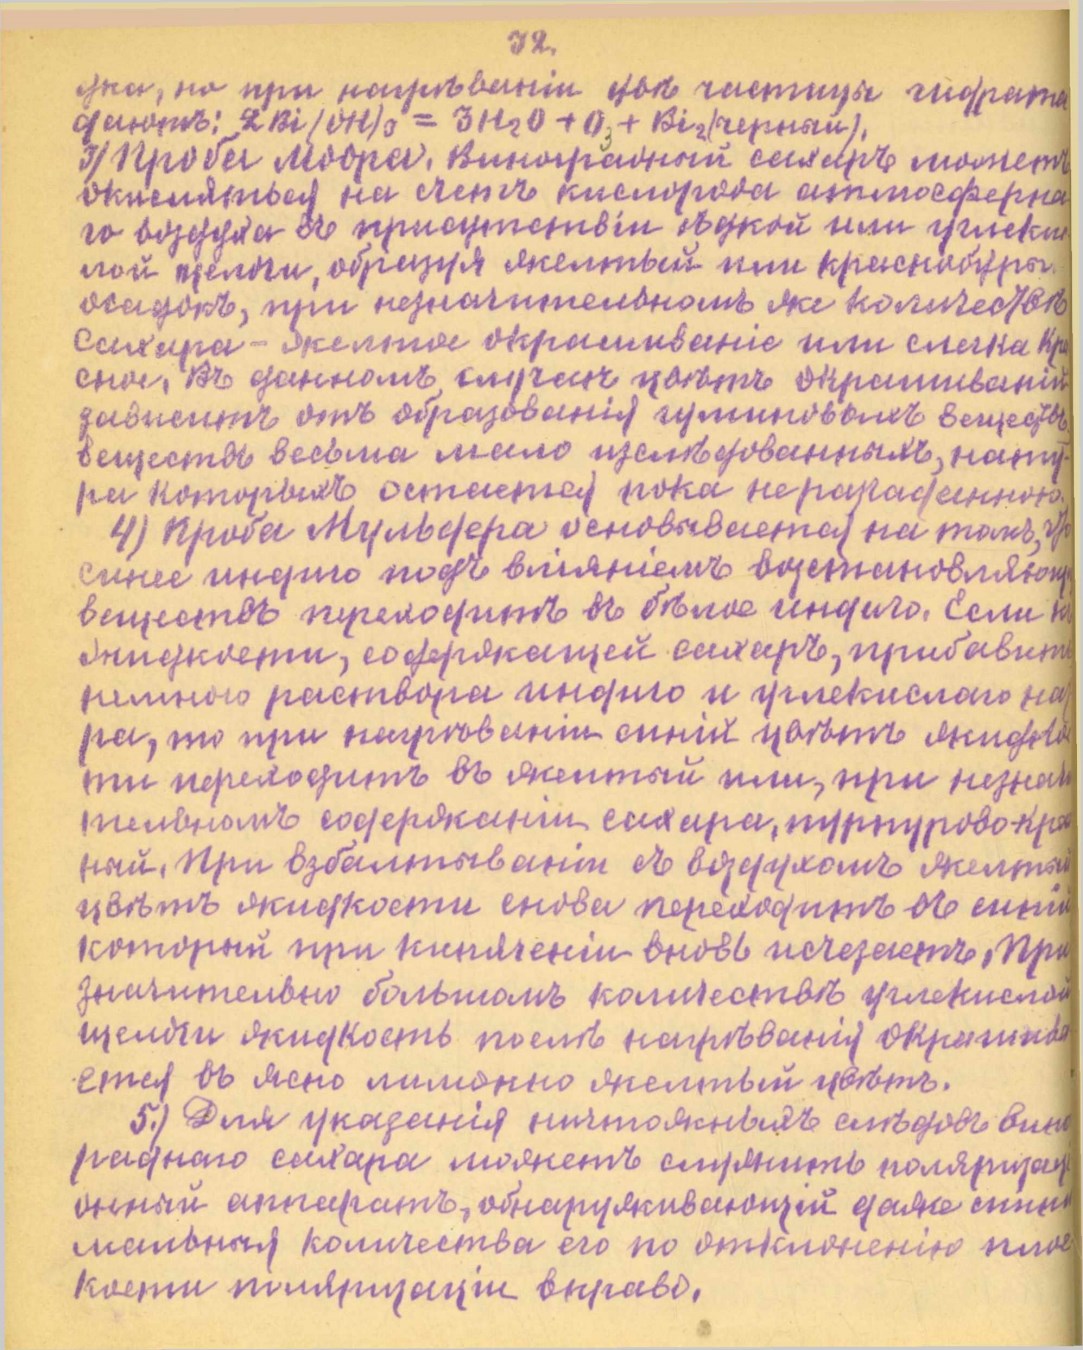 72.
дка, но при нагрѣваніи двѣ частицы гидрата
даютъ: 2Bi(OH)3 = 3H2O + O3 + Bi2 (черный).
3) Проба Моора. Виноградный сахаръ можетъ
окисляться на счетъ кислорода атмосферна
го воздуха въ присутствіи ѣдкой или углекис
лой щелочи, образуя желтый или краснобуры.
осадокъ, при незначительномъ же количествѣ
сахара – желтое окрашиваніе или слегка кра
сное. Въ данномъ случаѣ цвѣтъ окрашиваній
зависитъ отъ образованія гуминовыхъ веществъ,
веществъ весьма мало изслѣдованныхъ, нату-
ра которыхъ остается пока неразгаданною.
4) Проба Мульдера основывается на томъ, что
синее индиго подъ вліяніемъ возстановляющ
веществъ переходитъ въ бѣлое индиго. Если къ
жидкости, содержащей сахаръ, прибавить
немного раствора индиго и углекислаго нат
ра, то при нагрѣваніи синій цвѣтъ жидкос
ти переходитъ въ желтый или, при незначи
тельномъ содержаніи сахара, пурпурово-крас
ный. При взбалтываніи съ воздухомъ желтый
цвѣтъ жидкости снова переходитъ въ синій
который при кипяченіи вновь исчезаетъ. При
значительно большомъ количествѣ углекислой
щелочи жидкость послѣ нагрѣванія окрашива
ется въ ясно лимонно желтый цвѣтъ.
5.) Для указанія ничтожныхъ слѣдовъ вино
граднаго сахара можетъ служить поляризаці
онный аппаратъ, обнаруживающій даже мини
мальныя количества его по отклоненію плос
кости поляризаціи вправо.